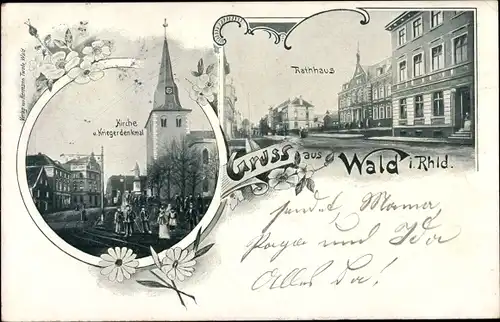 Verlag von Hermann Tienes, Wald
Kirche
u. Kriegerdenkmal
Rathhaus
Gruss aus Wald i. Rhld.
sendet, Mama,
Papa und Ida
Alles da!